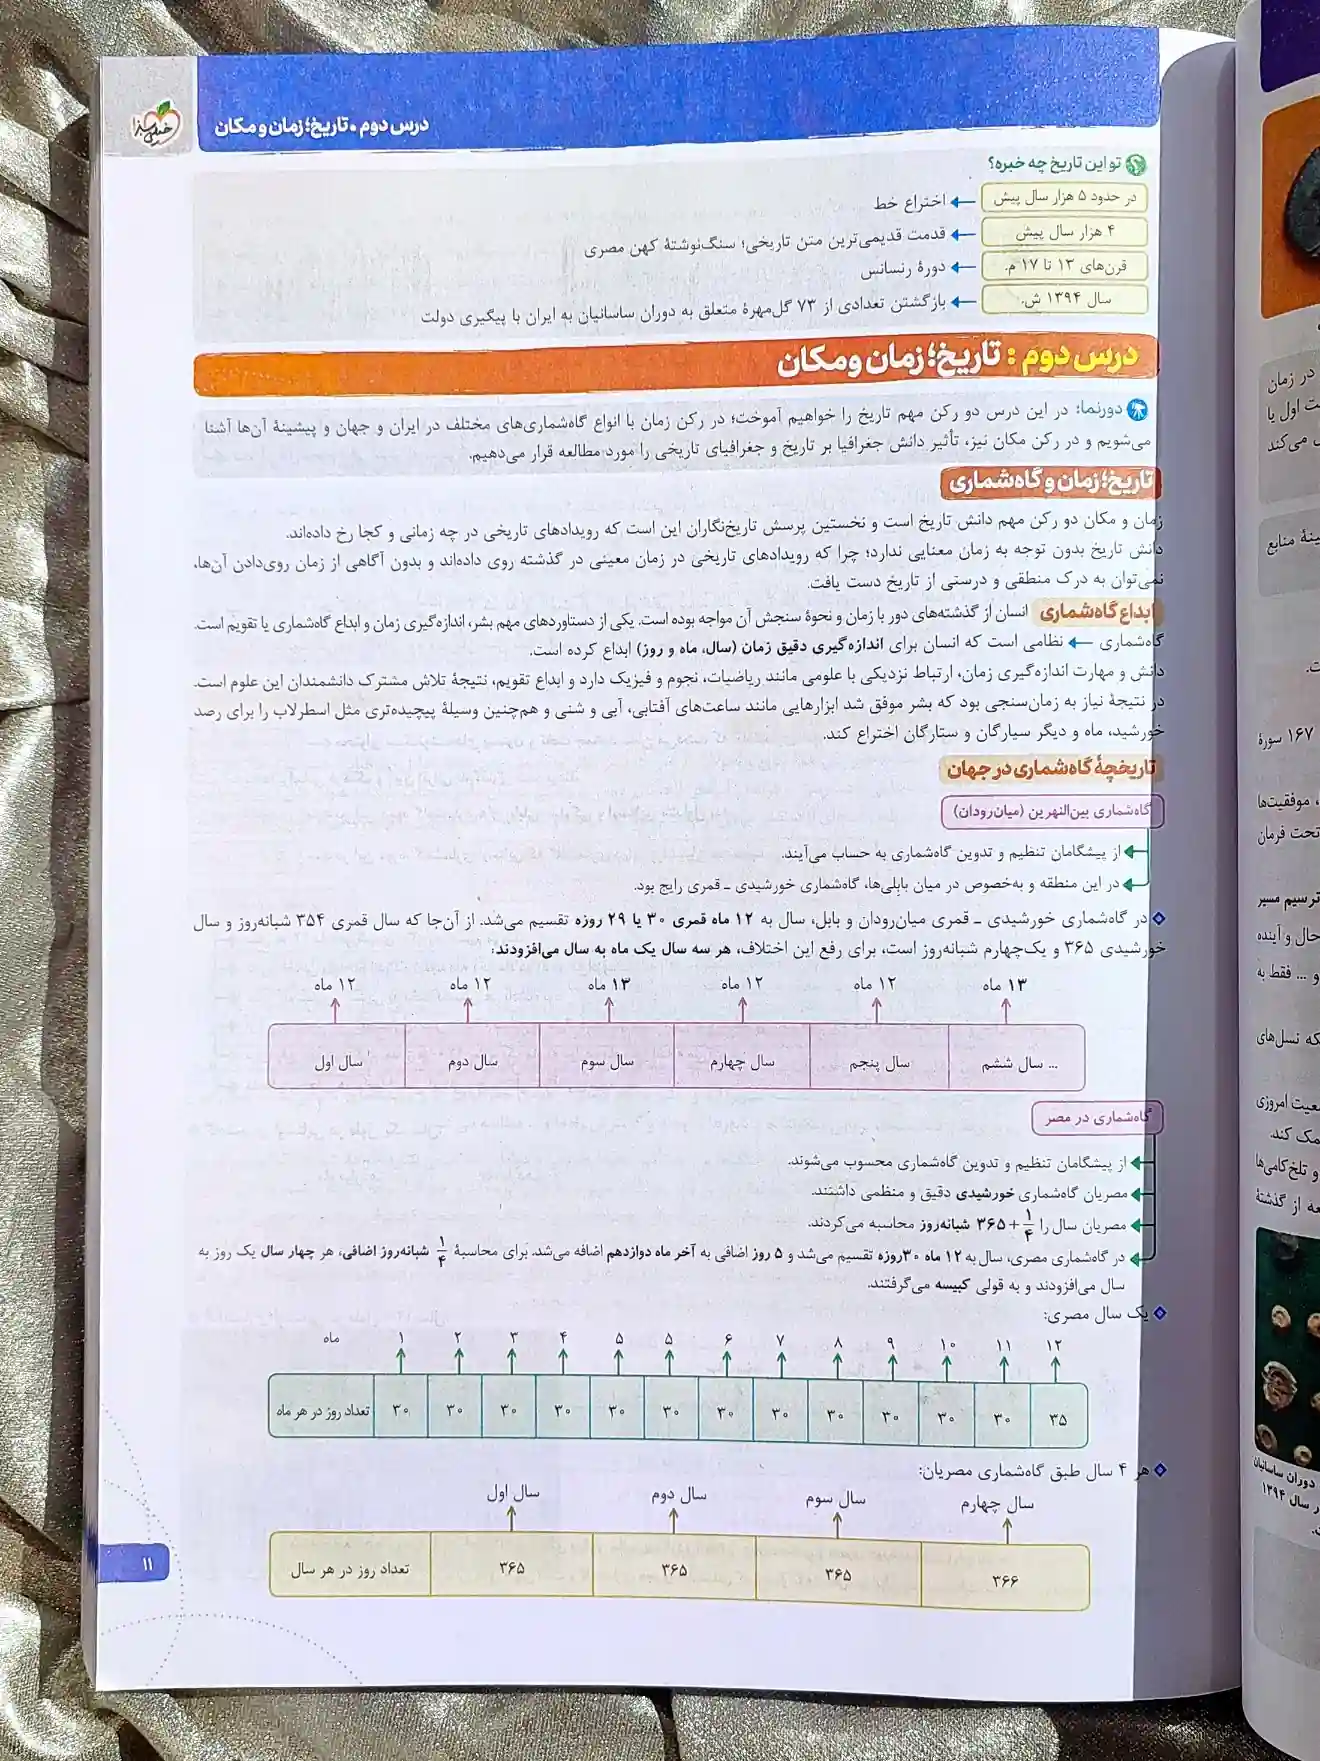 درس دوم • تاریخ؛ زمان و مکان
خیلی سبز
تو این تاریخ چه خبره؟
در حدود ۵ هزار سال پیش ← اختراع خط
۴ هزار سال پیش ← قدمت قدیمی‌ترین متن تاریخی؛ سنگ‌نوشتهٔ کهن مصری
قرن‌های ۱۳ تا ۱۷ م. ← دورهٔ رنسانس
سال ۱۳۹۴ ش. ← بازگشتن تعدادی از ۷۳ گل‌مهرهٔ متعلق به دوران ساسانیان به ایران با پیگیری دولت
درس دوم : تاریخ؛ زمان و مکان
دورنما: در این درس دو رکن مهم تاریخ را خواهیم آموخت؛ در رکن زمان با انواع گاه‌شماری‌های مختلف در ایران و جهان و پیشینهٔ آن‌ها آشنا
می‌شویم و در رکن مکان نیز، تأثیر دانش جغرافیا بر تاریخ و جغرافیای تاریخی را مورد مطالعه قرار می‌دهیم.
تاریخ؛ زمان و گاه‌شماری
زمان و مکان دو رکن مهم دانش تاریخ است و نخستین پرسش تاریخ‌نگاران این است که رویدادهای تاریخی در چه زمانی و کجا رخ داده‌اند.
دانش تاریخ بدون توجه به زمان معنایی ندارد؛ چرا که رویدادهای تاریخی در زمان معینی در گذشته روی داده‌اند و بدون آگاهی از زمان روی‌دادن آن‌ها،
نمی‌توان به درک منطقی و درستی از تاریخ دست یافت.
ابداع گاه‌شماری انسان از گذشته‌های دور با زمان و نحوهٔ سنجش آن مواجه بوده است. یکی از دستاوردهای مهم بشر، اندازه‌گیری زمان و ابداع گاه‌شماری یا تقویم است.
گاه‌شماری ← نظامی است که انسان برای اندازه‌گیری دقیق زمان (سال، ماه و روز) ابداع کرده است.
دانش و مهارت اندازه‌گیری زمان، ارتباط نزدیکی با علومی مانند ریاضیات، نجوم و فیزیک دارد و ابداع تقویم، نتیجهٔ تلاش مشترک دانشمندان این علوم است.
در نتیجهٔ نیاز به زمان‌سنجی بود که بشر موفق شد ابزارهایی مانند ساعت‌های آفتابی، آبی و شنی و هم‌چنین وسیلهٔ پیچیده‌تری مثل اسطرلاب را برای رصد
خورشید، ماه و دیگر سیارگان و ستارگان اختراع کند.
تاریخچهٔ گاه‌شماری در جهان
گاه‌شماری بین‌النهرین (میان‌رودان)
از پیشگامان تنظیم و تدوین گاه‌شماری به حساب می‌آیند.
در این منطقه و به‌خصوص در میان بابِلی‌ها، گاه‌شماری خورشیدی ـ قمری رایج بود.
در گاه‌شماری خورشیدی ـ قمری میان‌رودان و بابل، سال به ۱۲ ماه قمری ۳۰ یا ۲۹ روزه تقسیم می‌شد. از آن‌جا که سال قمری ۳۵۴ شبانه‌روز و سال
خورشیدی ۳۶۵ و یک‌چهارم شبانه‌روز است، برای رفع این اختلاف، هر سه سال یک ماه به سال می‌افزودند:
۱۲ ماه ۱۲ ماه ۱۳ ماه ۱۲ ماه ۱۲ ماه ۱۳ ماه
سال اول سال دوم سال سوم سال چهارم سال پنجم سال ششم ...
گاه‌شماری در مصر
از پیشگامان تنظیم و تدوین گاه‌شماری محسوب می‌شوند.
مصریان گاه‌شماری خورشیدی دقیق و منظمی داشتند.
مصریان سال را ۱/۴+۳۶۵ شبانه‌روز محاسبه می‌کردند.
در گاه‌شماری مصری، سال به ۱۲ ماه ۳۰روزه تقسیم می‌شد و ۵ روز اضافی به آخر ماه دوازدهم اضافه می‌شد. برای محاسبهٔ ۱/۴ شبانه‌روز اضافی، هر چهار سال یک روز به
سال می‌افزودند و به قولی کبیسه می‌گرفتند.
یک سال مصری:
ماه ۱ ۲ ۳ ۴ ۵ ۵ ۶ ۷ ۸ ۹ ۱۰ ۱۱ ۱۲
تعداد روز در هر ماه ۳۰ ۳۰ ۳۰ ۳۰ ۳۰ ۳۰ ۳۰ ۳۰ ۳۰ ۳۰ ۳۰ ۳۰ ۳۵
هر ۴ سال طبق گاه‌شماری مصریان:
سال اول سال دوم سال سوم سال چهارم
تعداد روز در هر سال ۳۶۵ ۳۶۵ ۳۶۵ ۳۶۶
۱۱
در زمان
ت اول یا
ل می‌کند
ینهٔ منابع
ت.
۱۶۷ سورهٔ
، موفقیت‌ها
تحت فرمان
ترسیم مسیر
حال و آینده
و ... فقط به
که نسل‌های
عیت امروزی
مک کند.
و تلخ‌کامی‌ها
عه از گذشتهٔ
دوران ساسانیان
ر سال ۱۳۹۴